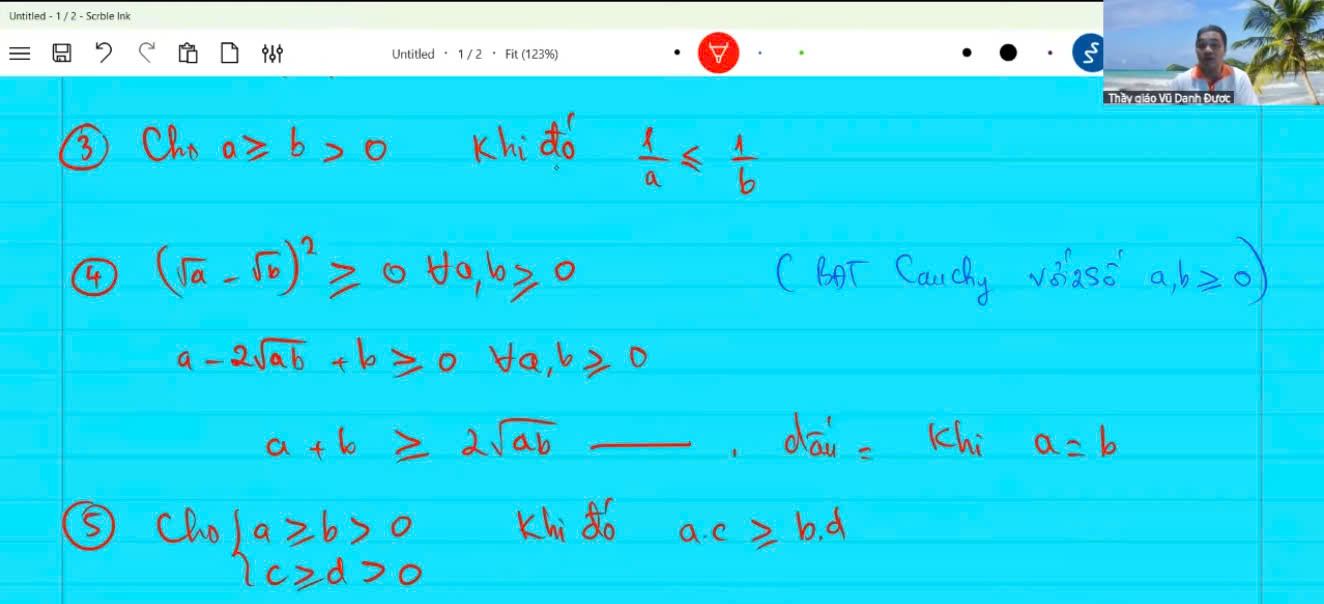 Untitled - 1 / 2 - Scrble Ink
Untitled · 1 / 2 · Fit (123%)
Thầy giáo Vũ Danh Được
③ Cho a ≥ b > 0 Khi đó 1/a ≤ 1/b
④ (√a - √b)² ≥ 0 ∀a,b ≥ 0 (BĐT Cauchy với 2 số a,b ≥ 0)
a - 2√ab + b ≥ 0 ∀a,b ≥ 0
a + b ≥ 2√ab —— . dấu = Khi a = b
⑤ Cho { a ≥ b > 0 Khi đó a.c ≥ b.d
c ≥ d > 0